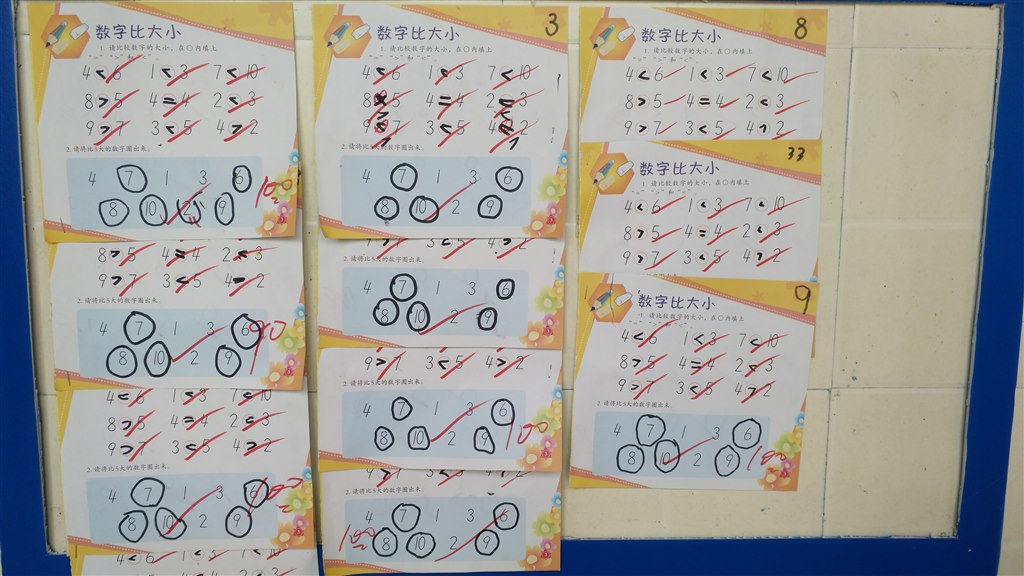 数字比大小
1. 请比较数字的大小，在○内填上
"=" ">" 和 "<"
4 < 6 1 < 3 7 < 10
8 > 5 4 = 4 2 < 3
9 > 7 3 < 5 4 > 2
2. 请将比5大的数字圈出来。
4 7 1 3 6
8 10 2 9
100
8 > 5 4 = 4 2 < 3
9 > 7 3 < 5 4 2
2. 请将比5大的数字圈出来。
4 7 1 3 6
8 10 2 9
90
4 < 6 1 < 3 7 < 10
8 > 5 4 = 4 2 < 3
9 > 7 3 < 5 4 > 2
2. 请将比5大的数字圈出来。
4 7 1 3 6
8 10 2 9
100
4 < 6 1 < 3 7 < 10
3
数字比大小
1. 请比较数字的大小，在○内填上
"=" ">" 和 "<"
4 < 6 1 < 3 7 < 10
8 5 4 = 4 2 3
9 7 3 < 5 4 2
2. 请将比5大的数字圈出来。
4 7 1 3 6
8 10 2 9
9 > 7 3 < 5 4 > 2
2. 请将比5大的数字圈出来。
4 7 1 3 6
8 10 2 9
9 > 7 3 < 5 4 > 2
2. 请将比5大的数字圈出来。
4 7 1 3 6
8 10 2 9
100
9 > 7 3 < 5 4 > 2
2. 请将比5大的数字圈出来。
4 7 1 3 6
8 10 2 9
100
8
数字比大小
1. 请比较数字的大小，在○内填上
"=" ">" 和 "<"
4 < 6 1 < 3 7 < 10
8 > 5 4 = 4 2 < 3
9 > 7 3 < 5 4 > 2
33
数字比大小
1. 请比较数字的大小，在○内填上
"=" ">" 和 "<"
4 < 6 1 < 3 7 < 10
8 > 5 4 = 4 2 < 3
9 > 7 3 < 5 4 > 2
9
数字比大小
1. 请比较数字的大小，在○内填上
"=" ">" 和 "<"
4 < 6 1 < 3 7 < 10
8 > 5 4 = 4 2 < 3
9 > 7 3 < 5 4 > 2
2. 请将比5大的数字圈出来。
4 7 1 3 6
8 10 2 9
100